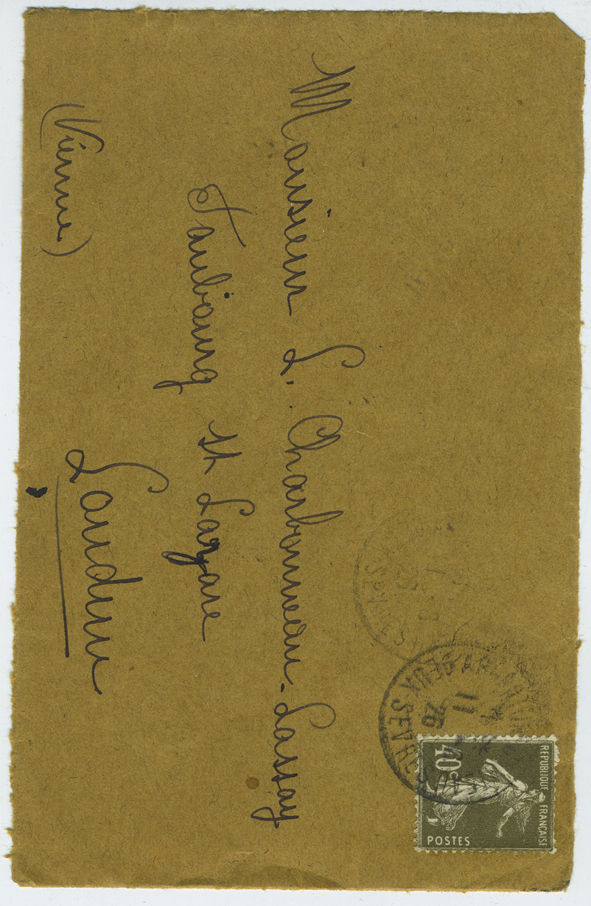 Monsieur L. Charbonneau-Lassay
Faubourg St Lazare
Loudun
(Vienne)
REPUBLIQUE FRANÇAISE
40c
POSTES
11
26
DEUX SEVRES